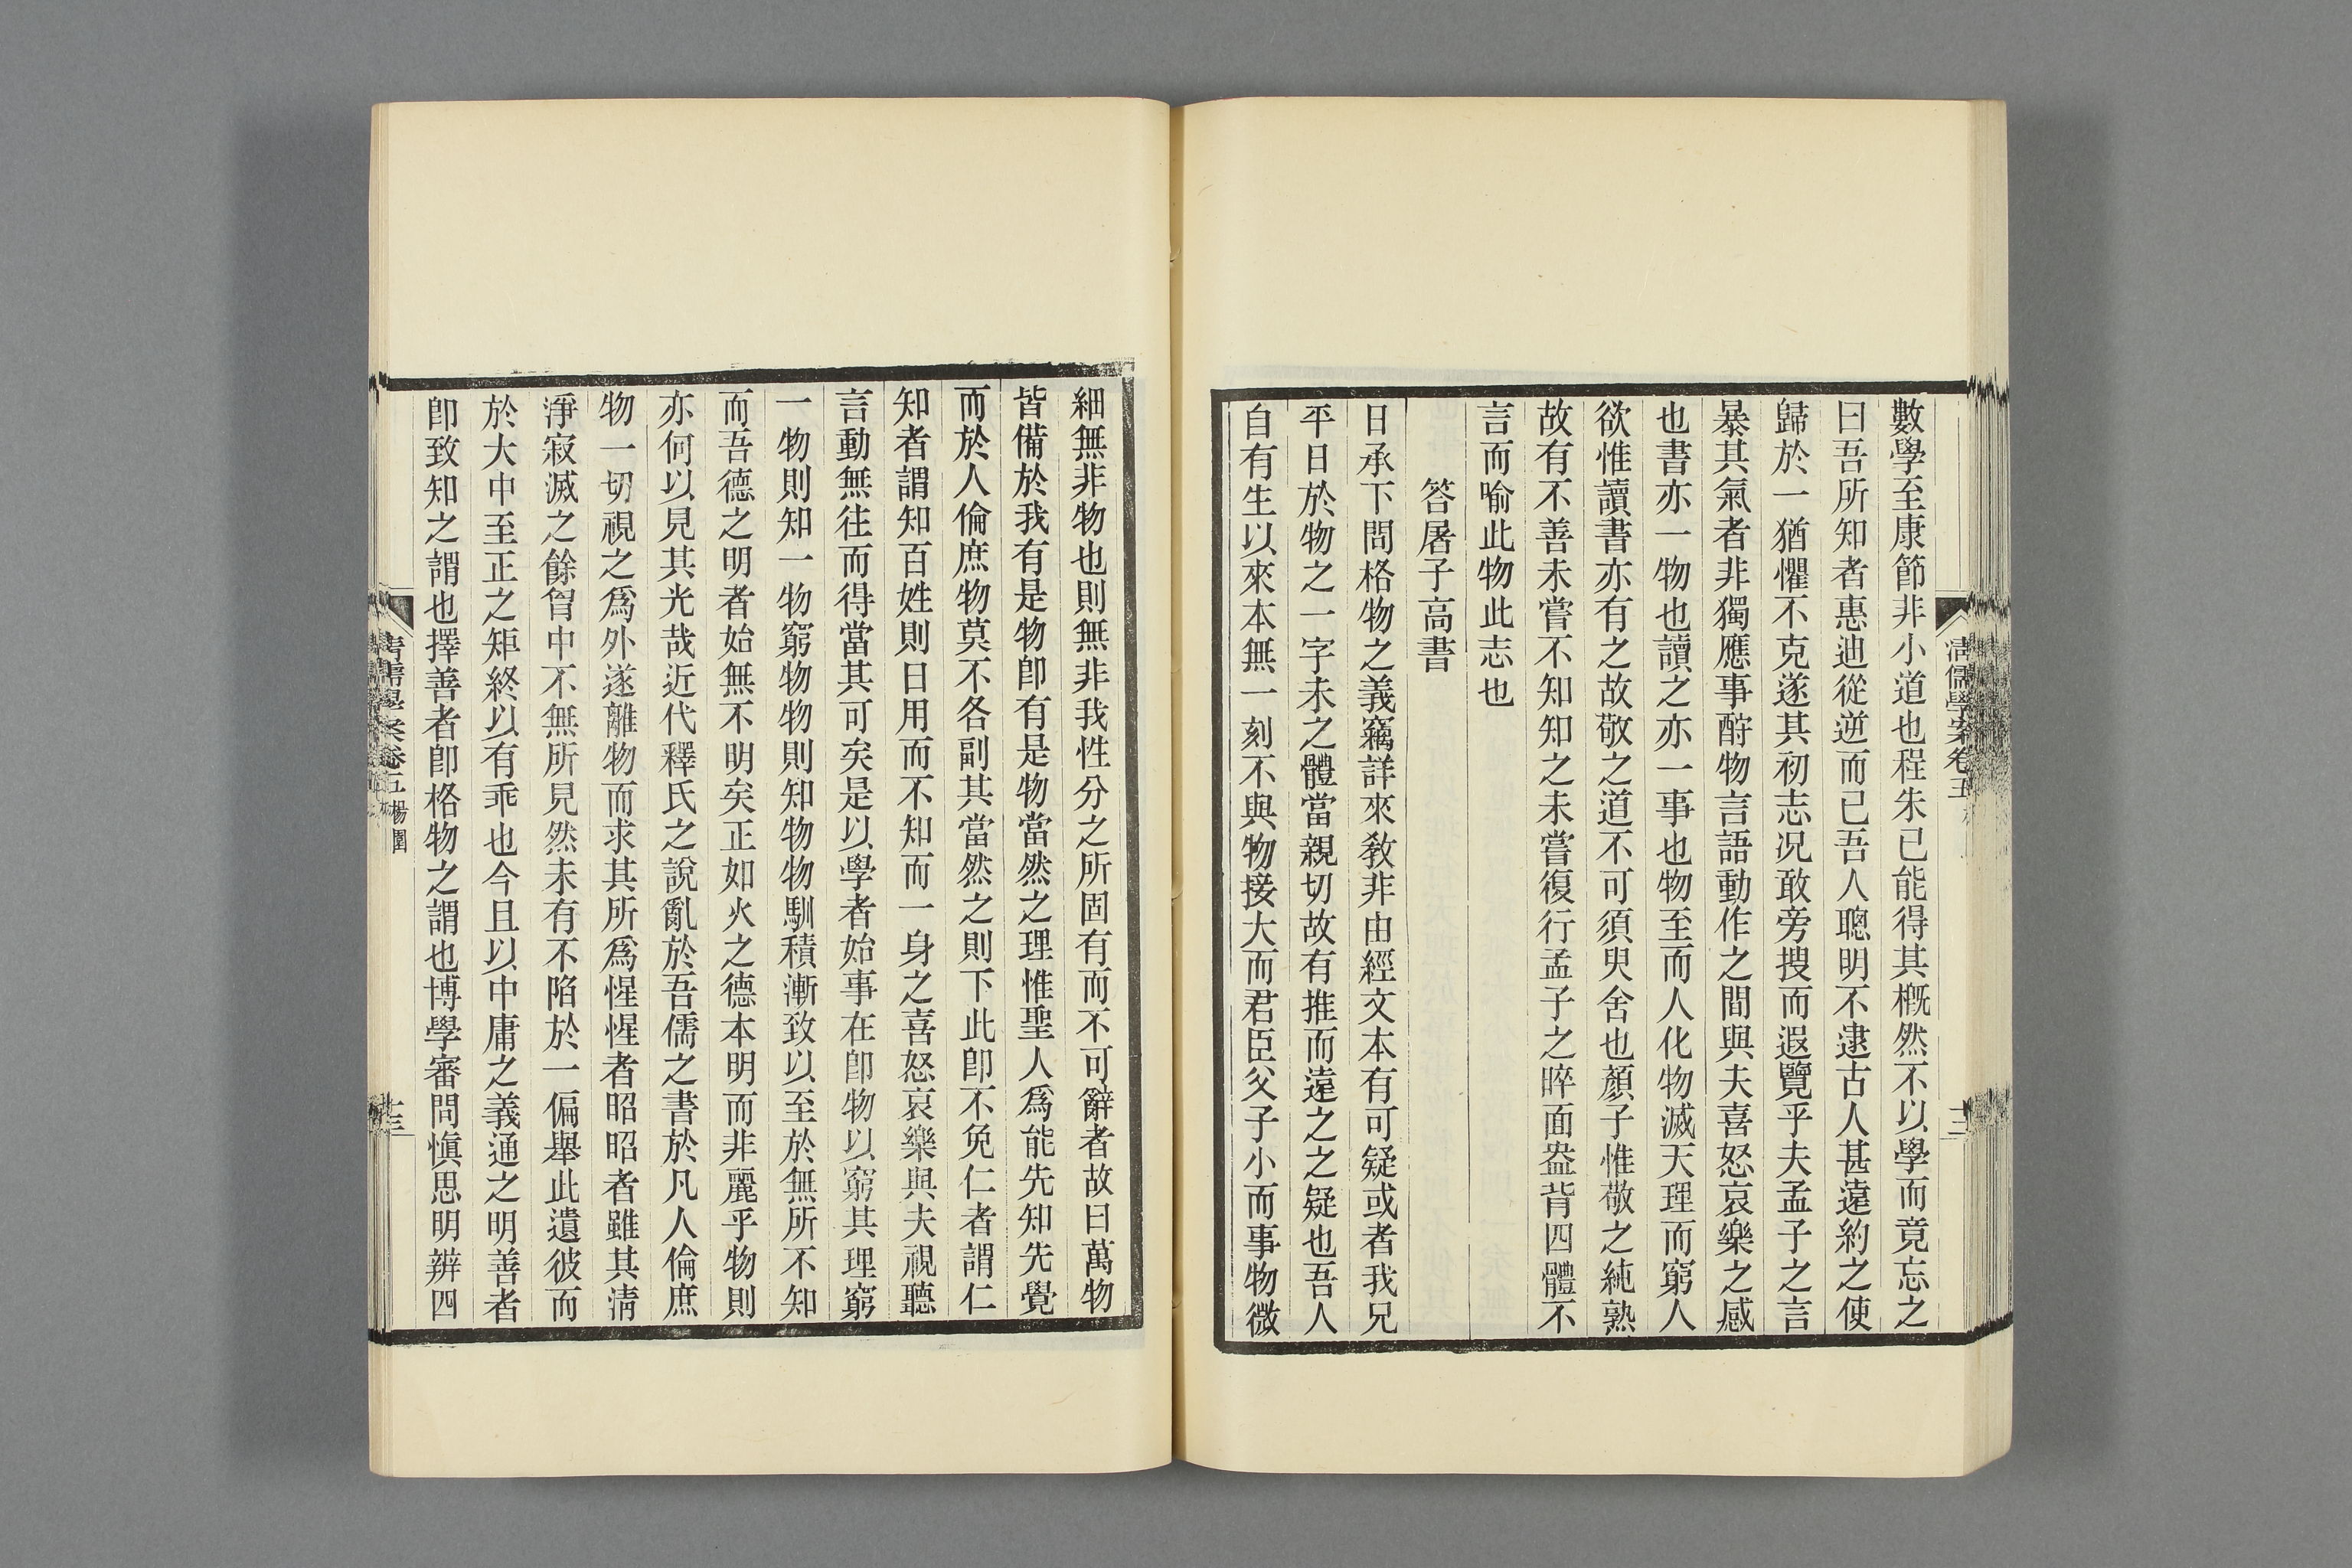 清儒學案卷五
數學至康節非小道也程朱已能得其槪然不以學而竟忘之
曰吾所知者惠迪從逆而已吾人聰明不逮古人甚遠約之使
歸於一猶懼不克遂其初志况敢旁搜而遐覽乎夫孟子之言
暴其氣者非獨應事酧物言語動作之間與夫喜怒哀樂之感
也書亦一物也讀之亦一事也物至而人化物滅天理而窮人
欲惟讀書亦有之故敬之道不可須臾舍也顏子惟敬之純熟
故有不善未嘗不知知之未嘗復行孟子之睟面盎背四體不
言而喻此物此志也
答屠子高書
日承下問格物之義竊詳來敎非由經文本有可疑或者我兄
平日於物之一字未之體當親切故有推而遠之之疑也吾人
自有生以來本無一刻不與物接大而君臣父子小而事物微
細無非物也則無非我性分之所固有而不可辭者故曰萬物
皆備於我有是物卽有是物當然之理惟聖人爲能先知先覺
而於人倫庶物莫不各副其當然之則下此卽不免仁者謂仁
知者謂知百姓則日用而不知而一身之喜怒哀樂與夫視聽
言動無往而得當其可矣是以學者始事在卽物以窮其理窮
一物則知一物窮物物則知物物馴積漸致以至於無所不知
而吾德之明者始無不明矣正如火之德本明而非麗乎物則
亦何以見其光哉近代釋氏之說亂於吾儒之書於凡人倫庶
物一切視之爲外遂離物而求其所爲惺惺者昭昭者雖其淸
淨寂滅之餘胷中不無所見然未有不陷於一偏舉此遺彼而
於大中至正之矩終以有乖也今且以中庸之義通之明善者
卽致知之謂也擇善者卽格物之謂也博學審問愼思明辨四
清儒學案卷五楊園
十三